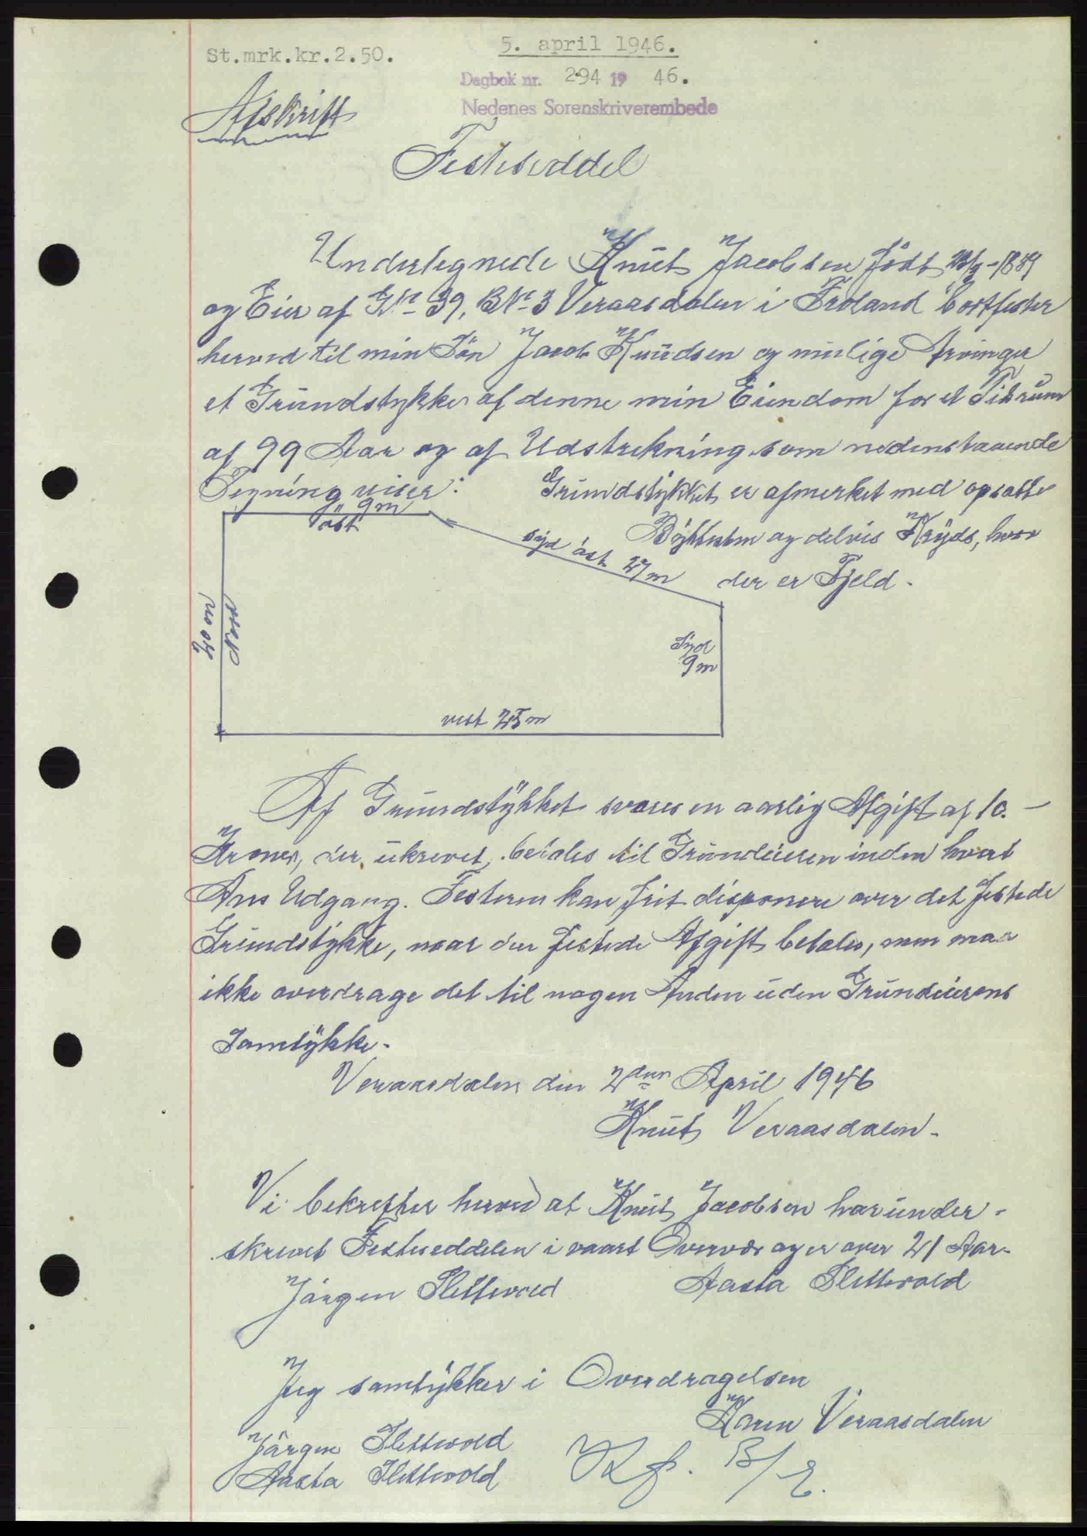 St.mrk.kr.2.50.
5. april 1946.
Dagbok nr. 294 19 46.
Nedenes Sorenskriverembede
Afskrift
Festeseddel
Undertegnede Knut Jacobsen født -1889
og Eier af GNr 39, BNr 3 Veraasdalen i Froland bortfester
herved til min Søn Jacob Knudsen og mulige Arvinger
et Grundstykke af denne min Eiendom for et Tidsrum
af 99 Aar og af Udstrekning som nedenstaaende
Tegning viser: Grundstykket er afmerket med opsatte
9 m
øst
Bøythulm og delvis Kryds, hvor
syd øst 27 m
der er Fjeld.
20 m
Nord
Syd
9 m
vest 25 m
Af Grundstykket svares en aarlig Afgift af 10.—
Kroner, der, ukrevet, betales til Grundeieren inden hvert
Aars Udgang. Festeren kan frit disponere over det festede
Grundstykke, naar den festede Afgift betales, men maa
ikke overdrage det til nogen Anden uden Grundeierens
Samtykke.
Veraasdalen den 2den April 1946
Knut Veraasdalen.
Vi bekrefter herved at Knut Jacobsen har under-
skrevet Festeseddelen i vaart Overvær og er over 21 Aar.
Jørgen Slettevold Aasta Slettevold
Jeg samtykker i Overdragelsen
Karen Veraasdalen
Jørgen Slettevold
Aasta Slettevold